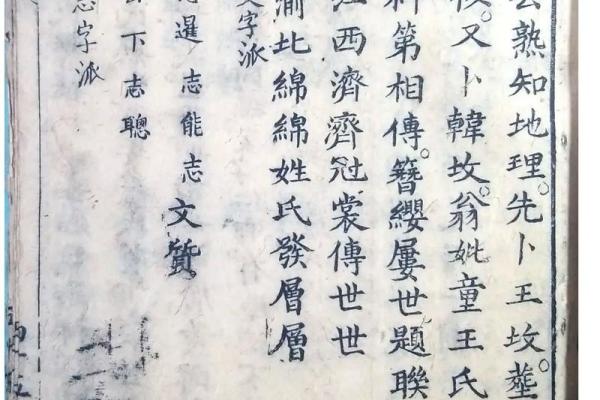 熟知地理。先卜王坟。塟
又卜韓坟。翁妣童王氏
科第相傳。簪纓屢世題聯
江西濟濟冠裳傳世世
渝北綿綿姓氏發層層
文字派
暹志能志文質
下志聰
字派